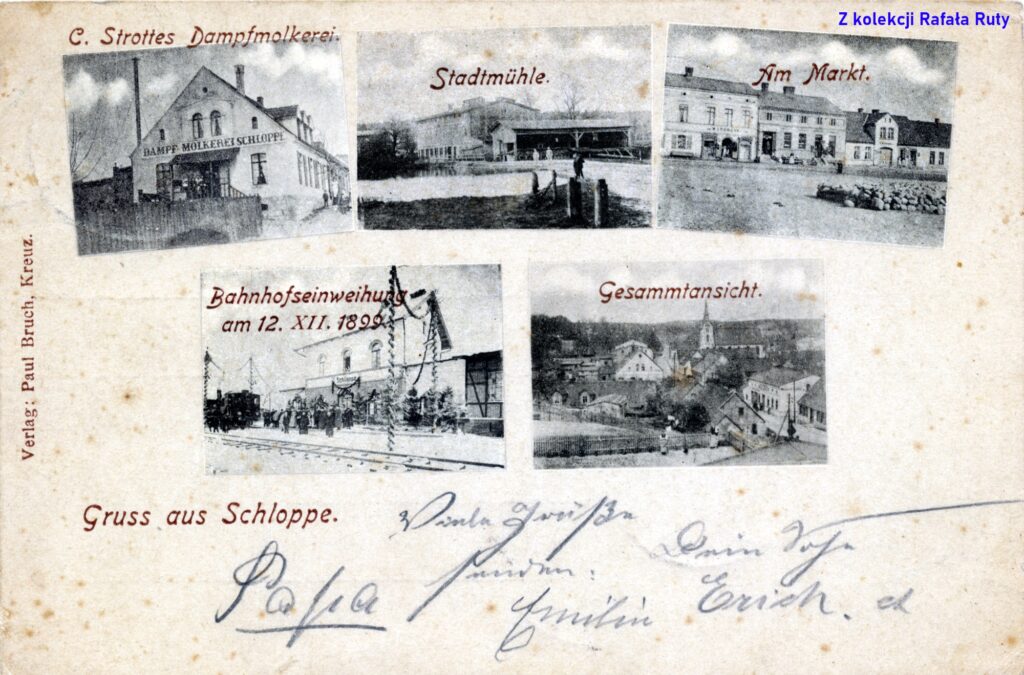 Z kolekcji Rafała Ruty
C. Strottes Dampfmolkerei.
DAMPF-MOLKEREI SCHLOPPE
Stadtmühle.
Am Markt.
Bahnhofseinweihung
am 12. XII. 1899.
Gesammtansicht.
Verlag: Paul Bruch, Kreuz.
Gruss aus Schloppe.
Viele Grüße
senden.
Dein Sohn
Erich. et
Papa